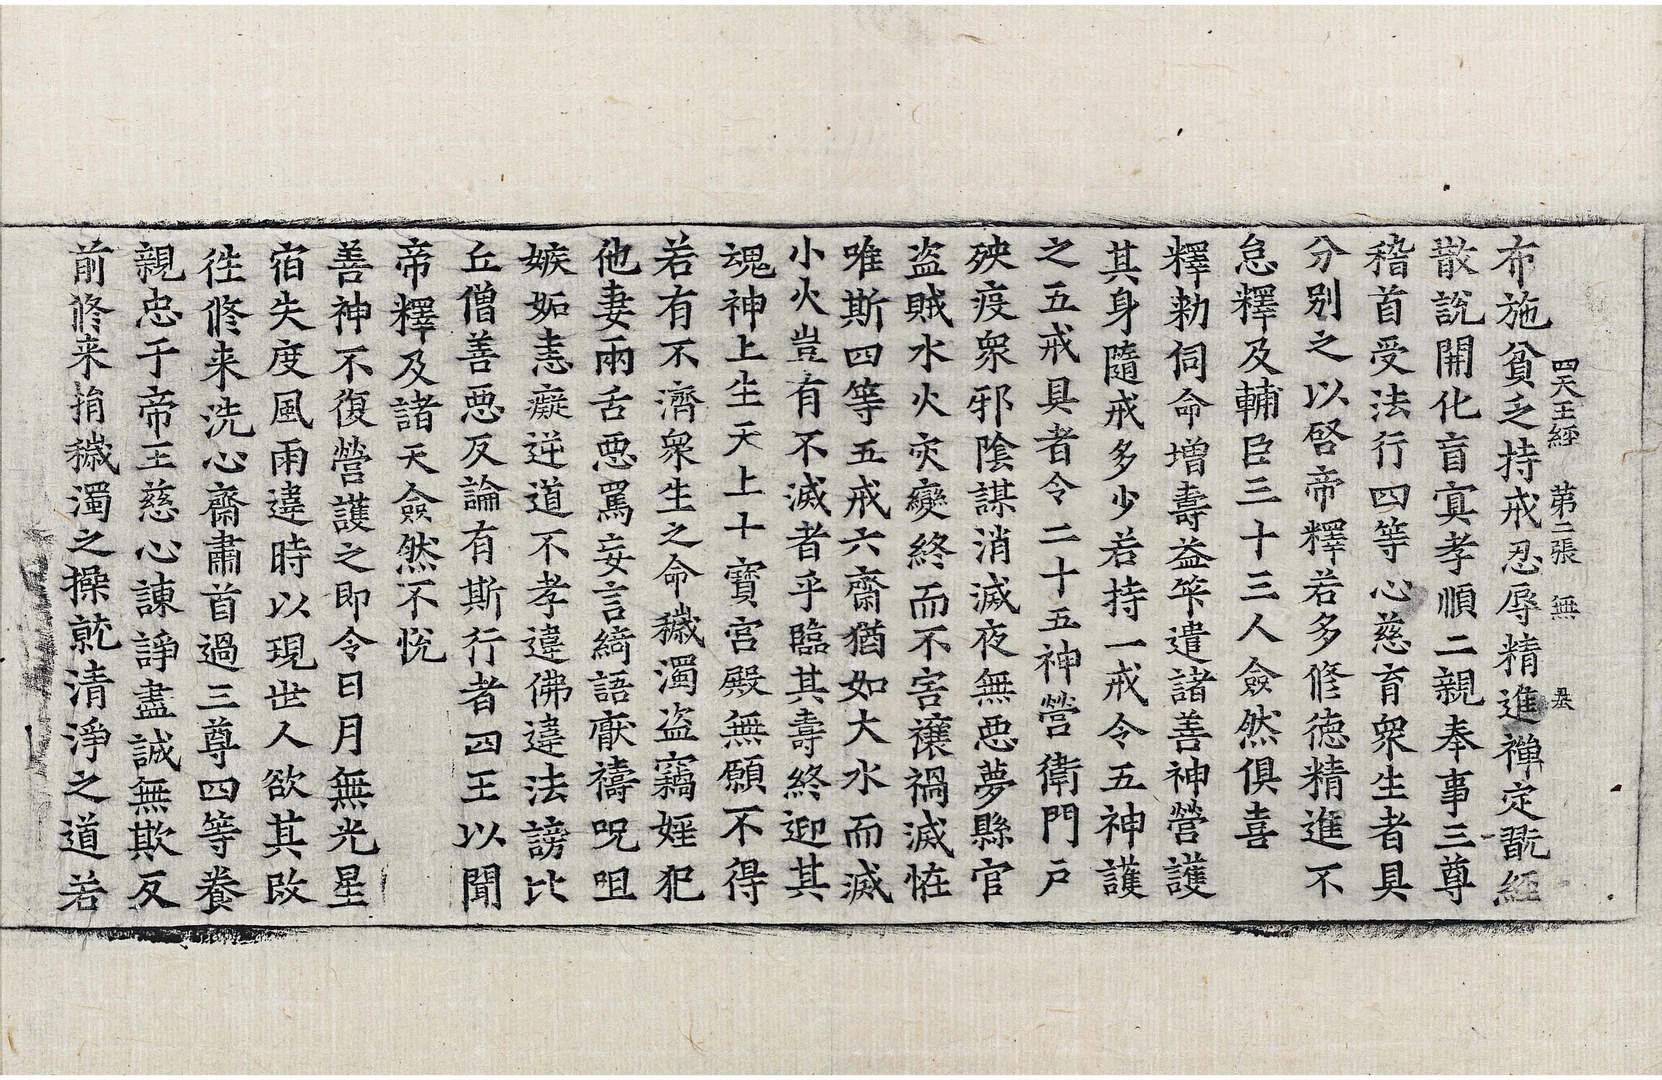 四天王經 第二張 無
布施貧乏持戒忍辱精進禪定翫經
散說開化盲冥孝順二親奉事三尊
稽首受法行四等心慈育衆生者具
分別之以啓帝釋若多修徳精進不
怠釋及輔臣三十三人僉然俱喜
釋勑伺命增壽益筭遣諸善神營護
其身隨戒多少若持一戒令五神護
之五戒具者令二十五神營衛門戶
殃疫衆邪陰謀消滅夜無惡夢縣官
盗賊水火灾變終而不害禳禍滅恠
唯斯四等五戒六齋猶如大水而滅
小火豈有不滅者乎臨其壽終迎其
魂神上生天上七寶宮殿無願不得
若有不濟衆生之命穢濁盗竊婬犯
他妻兩舌惡罵妄言綺語猒禱呪咀
嫉妬恚癡逆道不孝違佛違法謗比
丘僧善惡反論有斯行者四王以聞
帝釋及諸天僉然不悅
善神不復營護之即令日月無光星
宿失度風雨違時以現世人欲其改
徃修来洗心齋肅首過三尊四等養
親忠于帝王慈心諫諍盡誠無欺反
前修来捐穢濁之操就清淨之道若